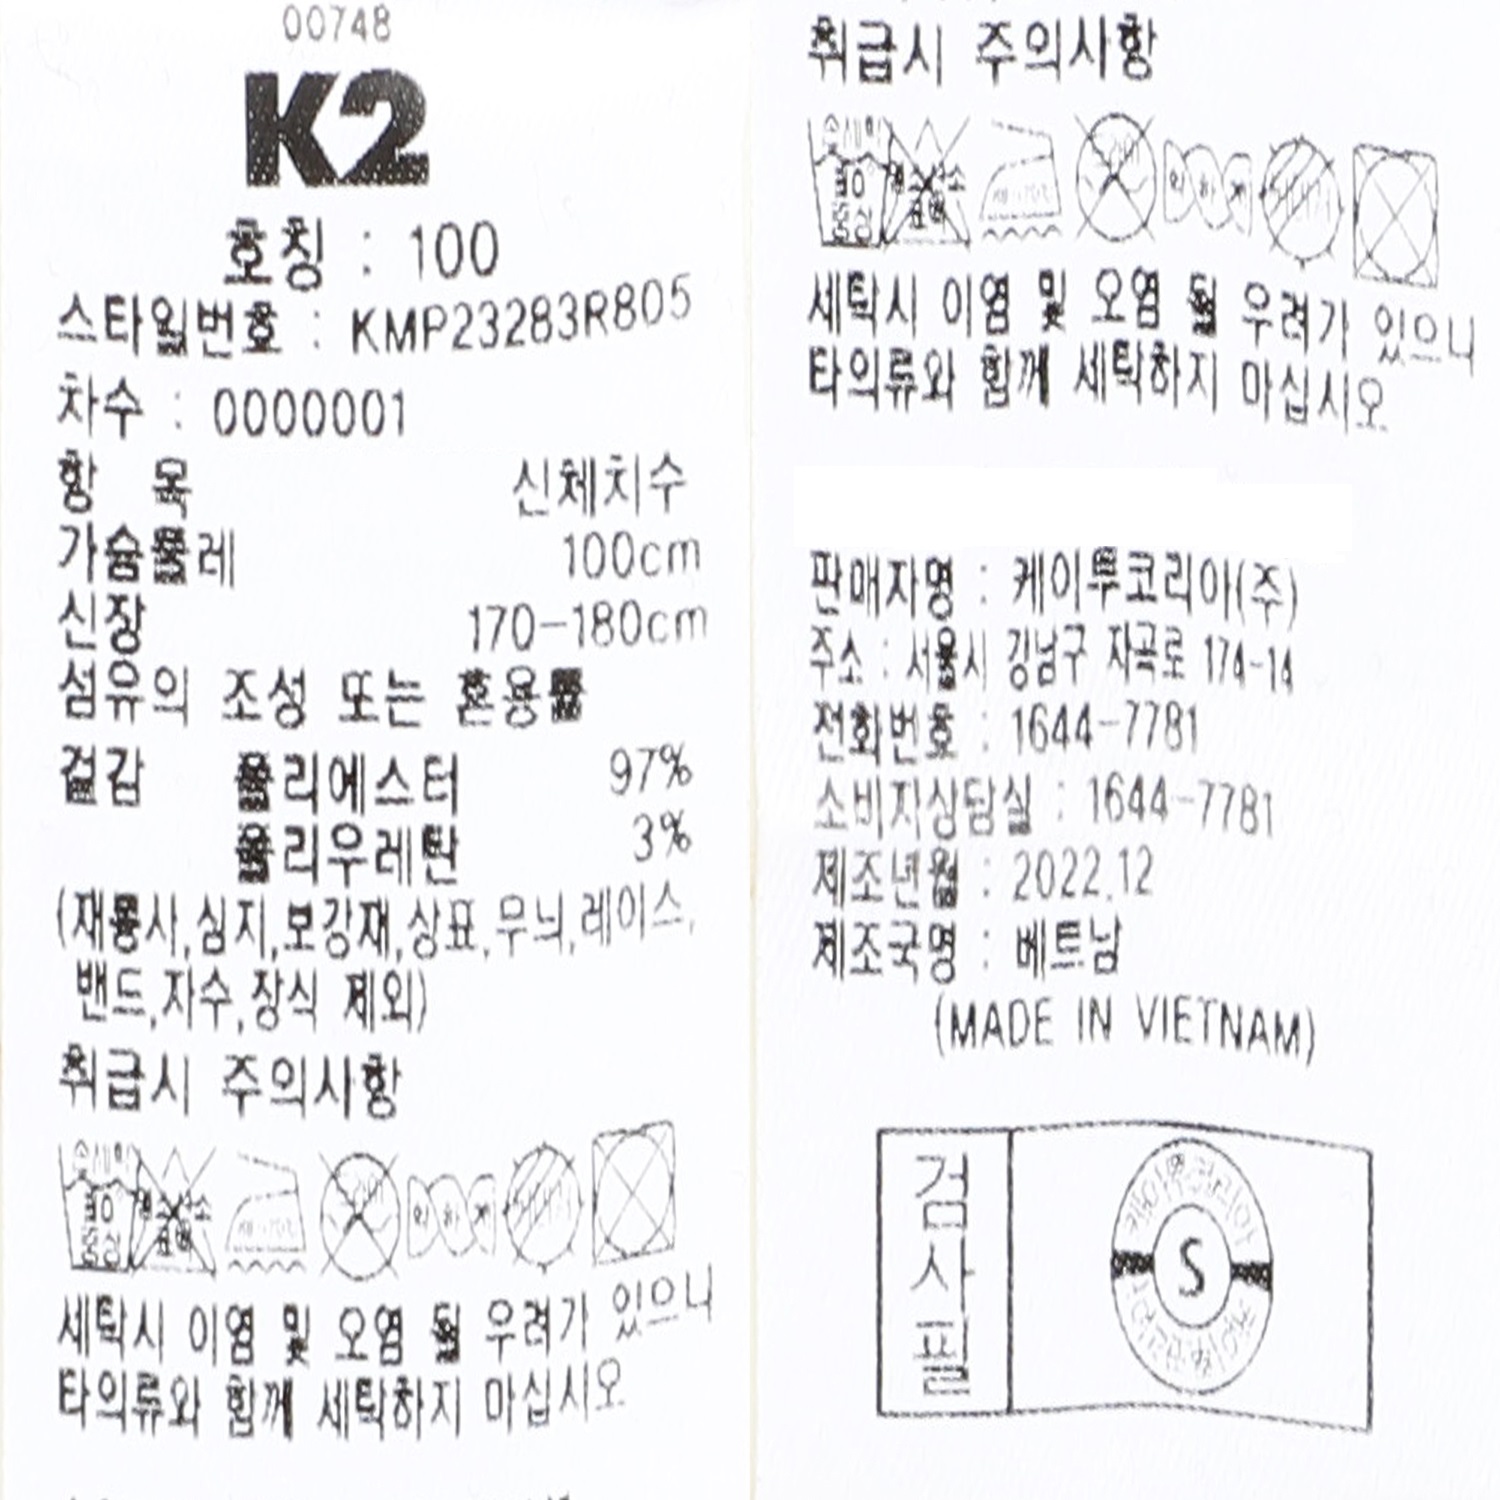 00748
K2
호칭 : 100
스타일번호 : KMP23283R805
차수 : 0000001
항 목 신체치수
가슴둘레 100cm
신장 170-180cm
섬유의 조성 또는 혼용률
겉감 폴리에스터 97%
폴리우레탄 3%
(재봉사,심지,보강재,상표,무늬,레이스,
밴드,자수,장식 제외)
취급시 주의사항
손세탁
중성
세탁시 이염 및 오염 될 우려가 있으니
타의류와 함께 세탁하지 마십시오
취급시 주의사항
손세탁
중성
세탁시 이염 및 오염 될 우려가 있으니
타의류와 함께 세탁하지 마십시오
판매자명 : 케이투코리아(주)
주소 : 서울시 강남구 자곡로 174-14
전화번호 : 1644-7781
소비자상담실 : 1644-7781
제조년월 : 2022.12
제조국명 : 베트남
(MADE IN VIETNAM)
검사필
케이투코리아
S